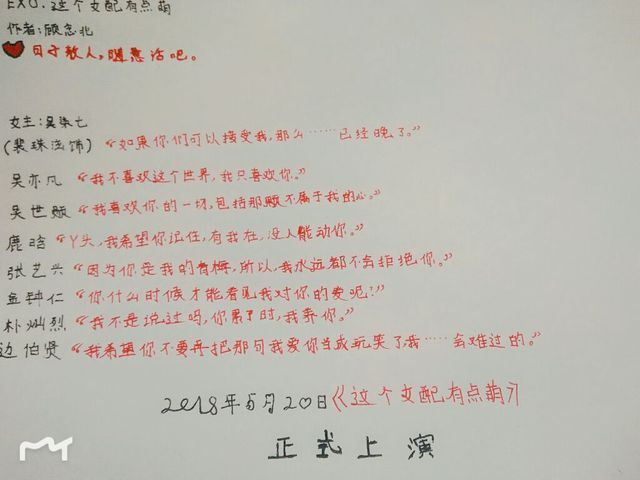 EXO.这个支配有点萌
作者:顾念北
女主:吴柒七
(裴珠泫饰)“如果你们可以接受我,那么……已经晚了。”
吴亦凡“我不喜欢这个世界,我只喜欢你。”
吴世勋“我喜欢你的一切,包括那颗不属于我的心。”
鹿晗“丫头,我希望你记住,有我在,没人能动你。”
张艺兴“因为你是我的青梅,所以,我永远都不会拒绝你。”
金钟仁“你什么时候才能看见我对你的爱呢!”
朴灿烈“我不是说过吗,你累了时,我养你。”
边伯贤“我希望你不要再把那句我爱你当成玩笑了我……会难过的。”
2018年5月20日《这个支配有点萌》
正式上演